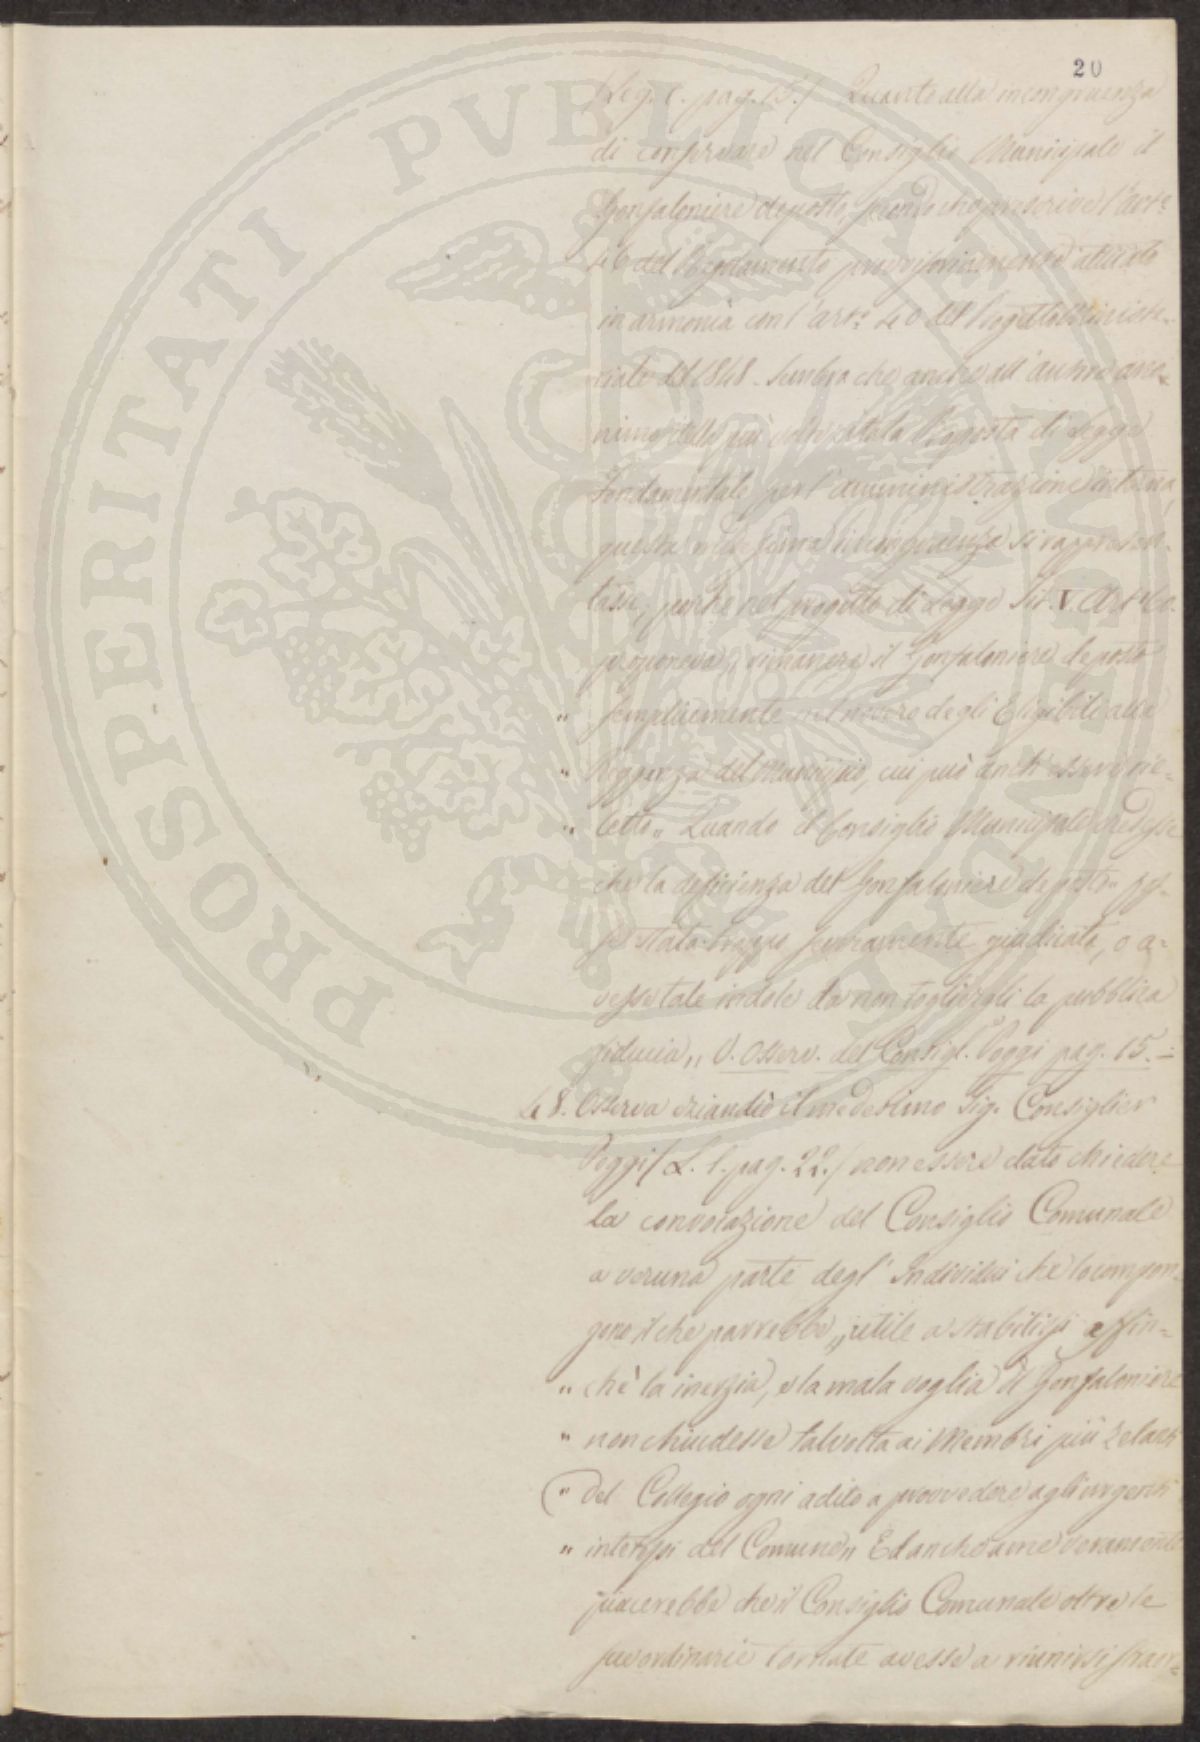 20
(Leg. c. pag. 15.) Quanto alla incongruenza
di conservare nel Consiglio Municipale il
Gonfaloniere deposto, secondo che prescrive l'art.º
46 del Regolamento provvisoriamente attuato
in armonia con l'art.º 40 del Progetto Ministe-
riale del 1848. Sembra che anche all'autore ano-
nimo della più volte citata Proposta di Legge
fondamentale per l'amministrazione interna,
questa medesima incongruenza si rappresen-
tasse, perchè nel progetto di Legge Tit. V. Art.
proponeva „ rimanere il Gonfaloniere deposto
„ semplicemente nel novero degli Eligibili alla
„ Reggenza del Municipio, cui può anch'essere rie-
„ letto „ Quando il Consiglio Municipale credesse
che la deficienza del Gonfaloniere deposto „ fos-
se stata troppo severamente giudicata, o a-
vesse tale indole da non togliergli la pubblica
fiducia „ V. Osserv. del Consigl. Poggi pag. 15. =
48. Osserva eziandio il medesimo Sig. Consiglier
Poggi (L. c. pag. 22.) non essere dato chiedere
la convocazione del Consiglio Comunale
a veruna parte degl' Individui che lo compon-
gono il che parrebbe „ utile a stabilirsi affin-
„ chè la inerzia, e la mala voglia di Gonfaloniere
„ non chiudesse talvolta ai Membri più zelanti
„ del Collegio ogni adito a provvedere agli urgenti
„ interessi del Comune „ Ed anche a me veramente
piacerebbe che il Consiglio Comunale oltre le
sue ordinarie tornate avesse a riunirsi straor-
PROSPERITATI PUBLICAE AUGENDAE